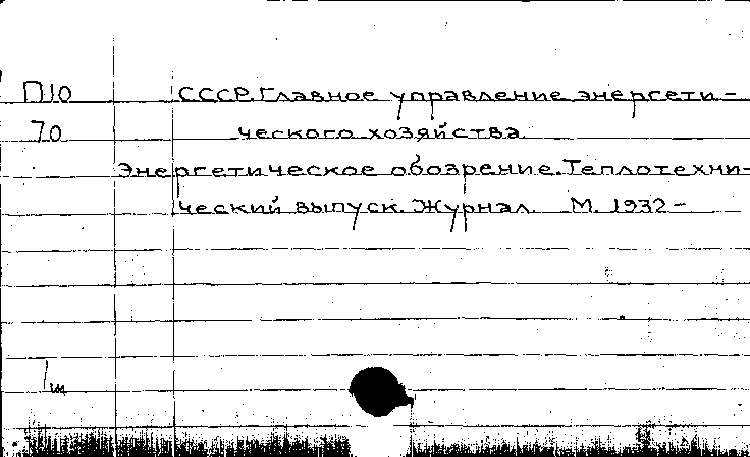 П10 СССР. Главное управление энергети-
70 ческого хозяйства.
Энергетическое обозрение. Теплотехни-
ческий выпуск. Журнал. М. 1932-
1ш